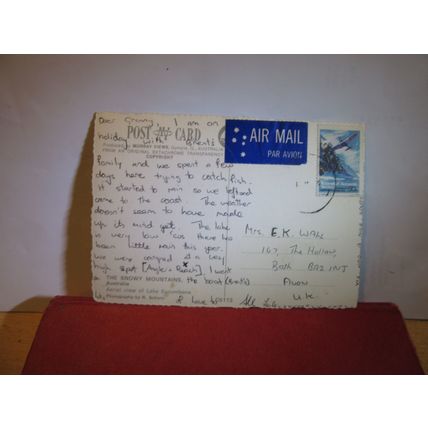 Dear Granny, I am on
holiday with
family and we spent a few
days here trying to catch fish.
It started to rain so we left and
came to the coast. The weather
doesn't seem to have made
up its mind yet. The lake
is very low 'cos there has
been little rain this year.
We were camped at a very
high spot [Angler's Reach]. I went
in the boat
x
I love to
POST CARD
MURRAY VIEWS, GYMPIE, Q., AUSTRALIA
FROM AN ORIGINAL EKTACHROME TRANSPARENCY
COPYRIGHT
THE SNOWY MOUNTAINS,
Australia
Aerial view of Lake Eucumbene
AIR MAIL
PAR AVION
Mrs. E.K. Wall
167, The Hollow,
Bath BA2 1NJ
Avon
U.K.